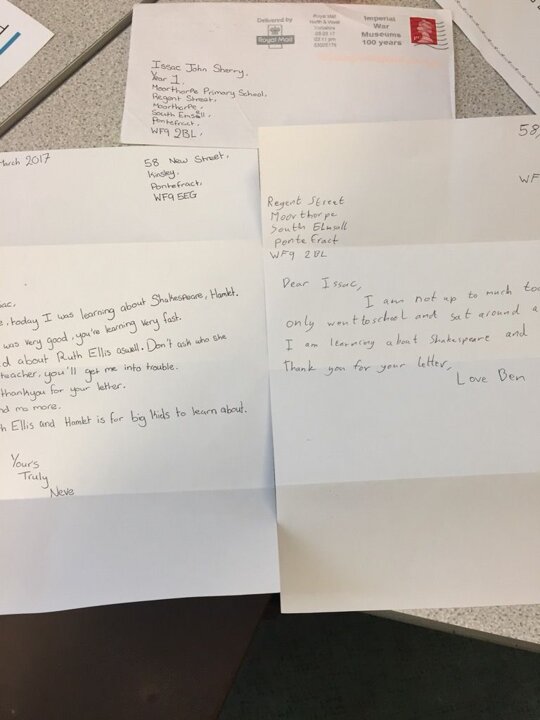 Delivered by
Royal Mail
Royal Mail
North & West
Yorkshire
Imperial
War
Museums
100 years
Issac John Sherry.
Year 1.
Moorthorpe Primary School,
Regent Street,
Moorthorpe,
South Emsall
Pontefract,
WF9 2BL.
March 2017
58 New Street,
Kinsley,
Pontefract,
WF9 5EG
today I was learning about Shakespeare, Hamlet.
was very good, you're learning very fast.
about Ruth Ellis aswell. Don't ask who she
teacher, you'll get me into trouble.
thankyou for your letter.
mo more.
Ellis and Hamlet is for big kids to learn about.
Yours
Truly
Neve
58
WF
Regent Street
Moorthorpe
South Elmsall
Pontefract
WF9 2BL
Dear Issac,
I am not up to much
only went to school and sat around
I am learning about Shakespeare and
Thank you for your letter,
Love Ben